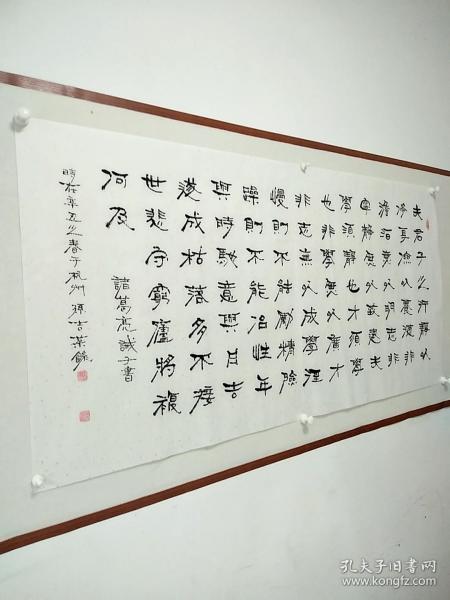 夫君子之行靜以
修身儉以養德非
澹泊無以明志非
寧靜無以致遠夫
學須靜也才須學
也非學無以廣才
非志無以成學淫
慢則不能勵精險
躁則不能治性年
與時馳意與日去
遂成枯落多不接
世悲守窮廬將複
何及
諸葛亮誡子書
時在辛丑之春于杭州
孔夫子旧书网
www.kongfz.com